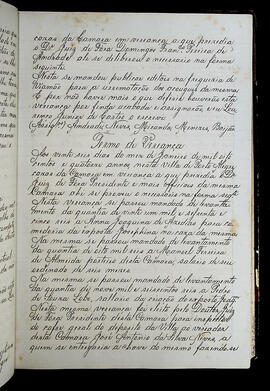 cazas da Camara em vereança a que prezidia
o Dor. Juiz de Fora Domingos Franco. Pereira de
Andrade ahi se deliberou o necessario na forma
seguinte
Nesta se mandou publicar editos na freguezia de
Viamão para a arrematação dos acougues da mesma
E por não haver mais o que deferir houverão esta
vereança por finda acabada e assignarão eu Lou
renço Junior de Castro o escrevi
Andrade, Neves, Miranda, Menezes,
Termo de Vereança
Aos vinte seis dias do mez de Janeiro de mil oito
centos e quatro annos nesta villa de Porto Alegre
cazas da Camara em vereança a que prezidia o Dor.
Juiz de Fora Prezidente e mais officiaes da mesma
Camara ahi se proveu o necessario na forma segte.
Nesta vereança se passou mandado de levanta-
mento da quantia de vinte um mil e
centos reis a Anna Joaquina de para
da exposta Josephina na caza da mesma
Na mesma se passou mandado de levantamento
da quantia de oito mil reis a Manoel Ferreira
de Almeida porteiro desta Camara, salario de seu
ordenado de seis mezes
Na mesma se passou mandado de levantamento
da quantia de nove mil e seiscentos reis a Pedro
de Souza Lobo, salario da criação do exposto João
Nesta mesma vereança foi eleito pelo Doutor Juiz
de Fora Prezidente desta Camara para
do cofre geral do deposito da Villa ao vereador
desta Camara José Antonio da Silva Neves, a
quem se entregaria a chave do mesmo fazendo-se